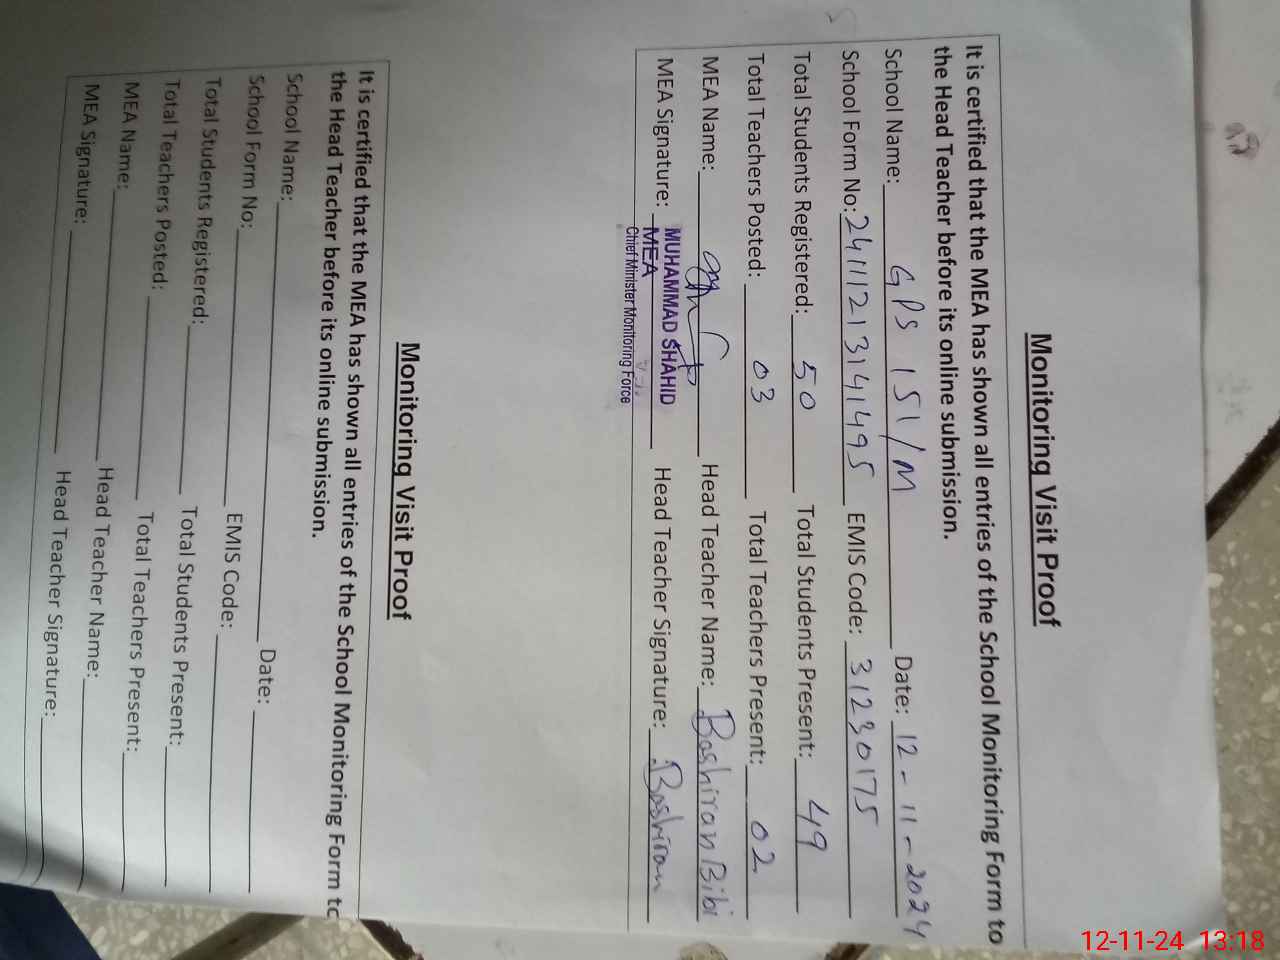 Monitoring Visit Proof
It is certified that the MEA has shown all entries of the School Monitoring Form to
the Head Teacher before its online submission.
School Name: GPS 151/M Date: 12-11-2024
School Form No: 24111213141495 EMIS Code: 31230175
Total Students Registered: 50 Total Students Present: 49
Total Teachers Posted: 03 Total Teachers Present: 02
MEA Name: Head Teacher Name: Bashiran Bibi
MEA Signature: Head Teacher Signature: Bashiran
MUHAMMAD SHAHID
MEA
Chief Minister Monitoring Force
Monitoring Visit Proof
It is certified that the MEA has shown all entries of the School Monitoring Form to
the Head Teacher before its online submission.
School Name: Date:
School Form No: EMIS Code:
Total Students Registered: Total Students Present:
Total Teachers Posted: Total Teachers Present:
MEA Name: Head Teacher Name:
MEA Signature: Head Teacher Signature:
12-11-24 13:18